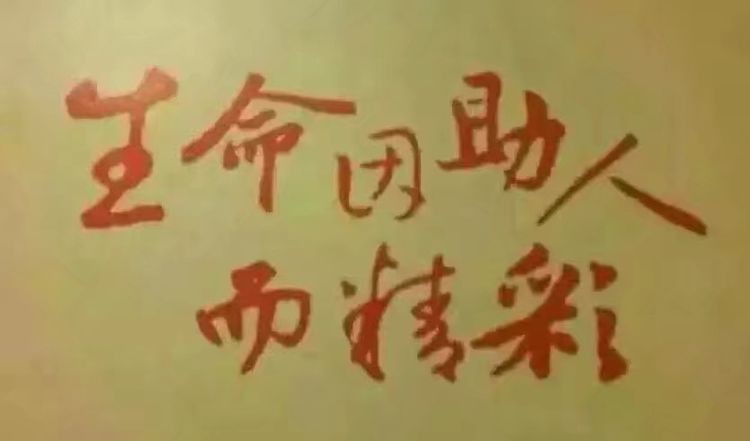 生命因助人
而精彩